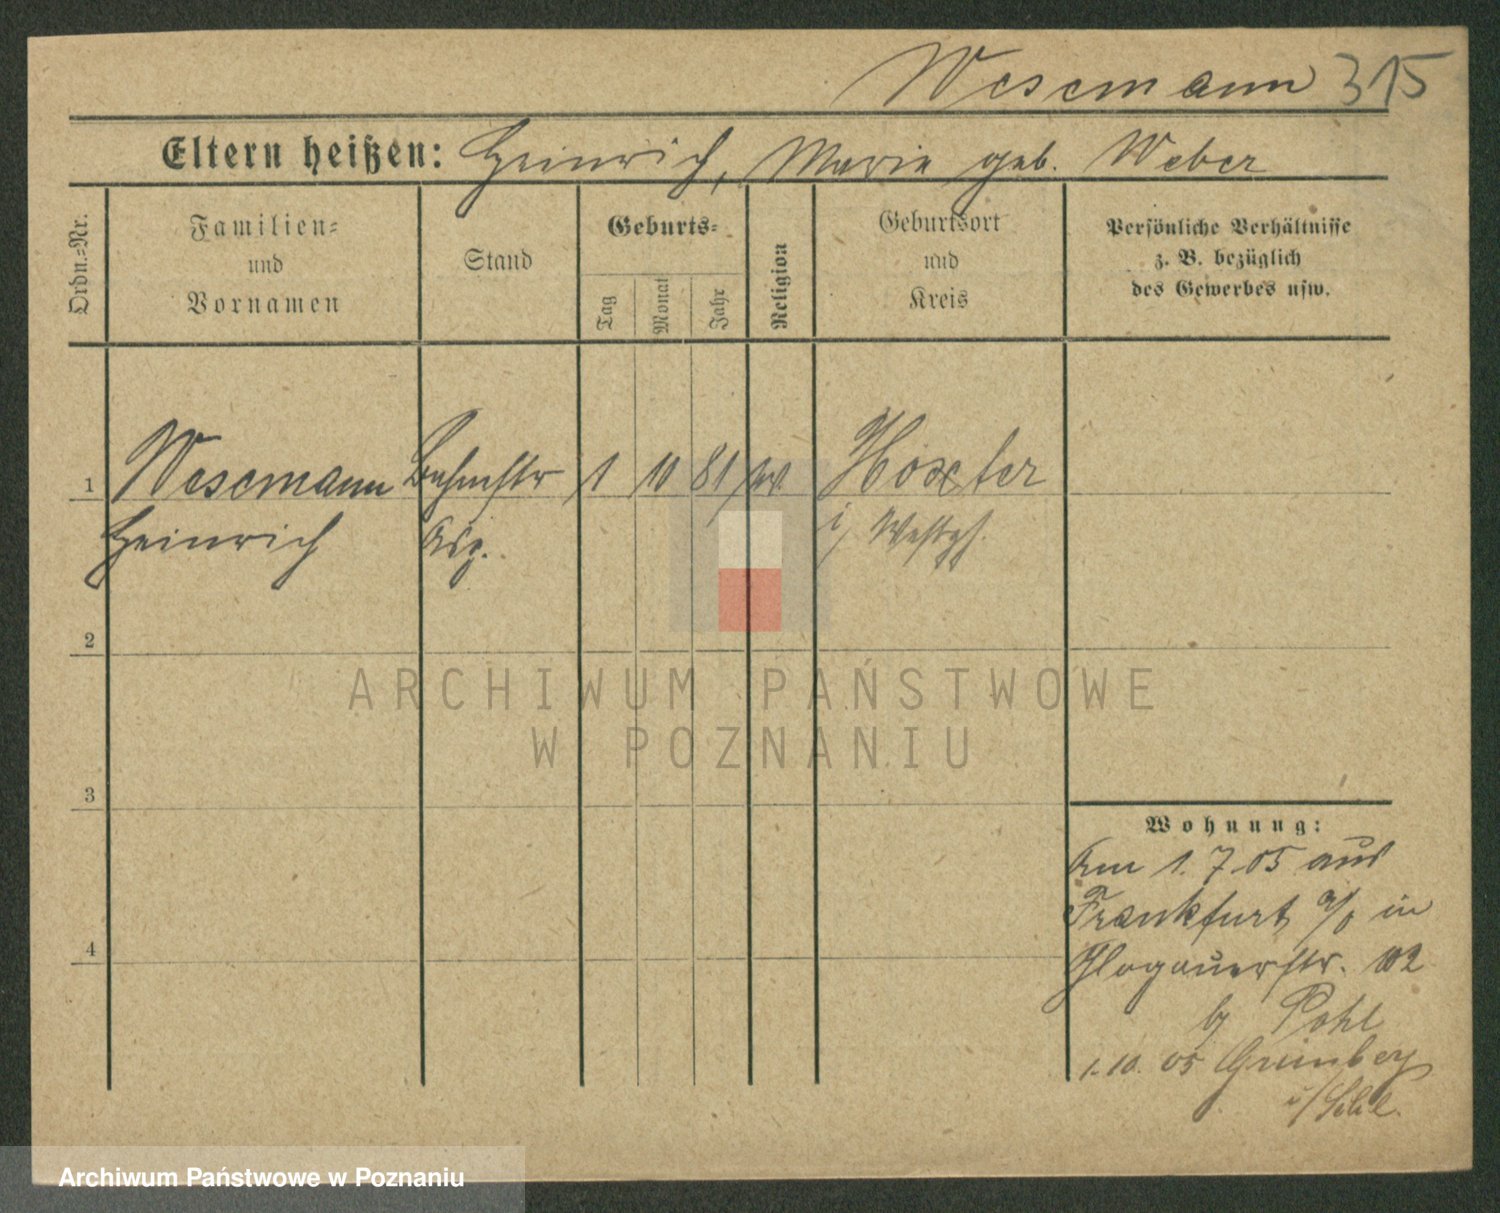 Wesemann 315
Eltern heißen: Heinrich, Marie geb. Weber
Ordn.-Nr.
Familien-
und
Vornamen
Stand
Geburts-
Tag
Monat
Jahr
Religion
Geburtsort
und
Kreis
Persönliche Verhältnisse
z. B. bezüglich
des Gewerbes usw.
1 Wesemann 1 10 81 Höxter
Heinrich i/ Westph.
2
3
4
Wohnung:
Am 1.7.05 aus
Frankfurt a/o in
Glogauerstr. 102
b/ Pohl
1.10.05 Grünberg
i/Schl.
ARCHIWUM PAŃSTWOWE
W POZNANIU
Archiwum Państwowe w Poznaniu